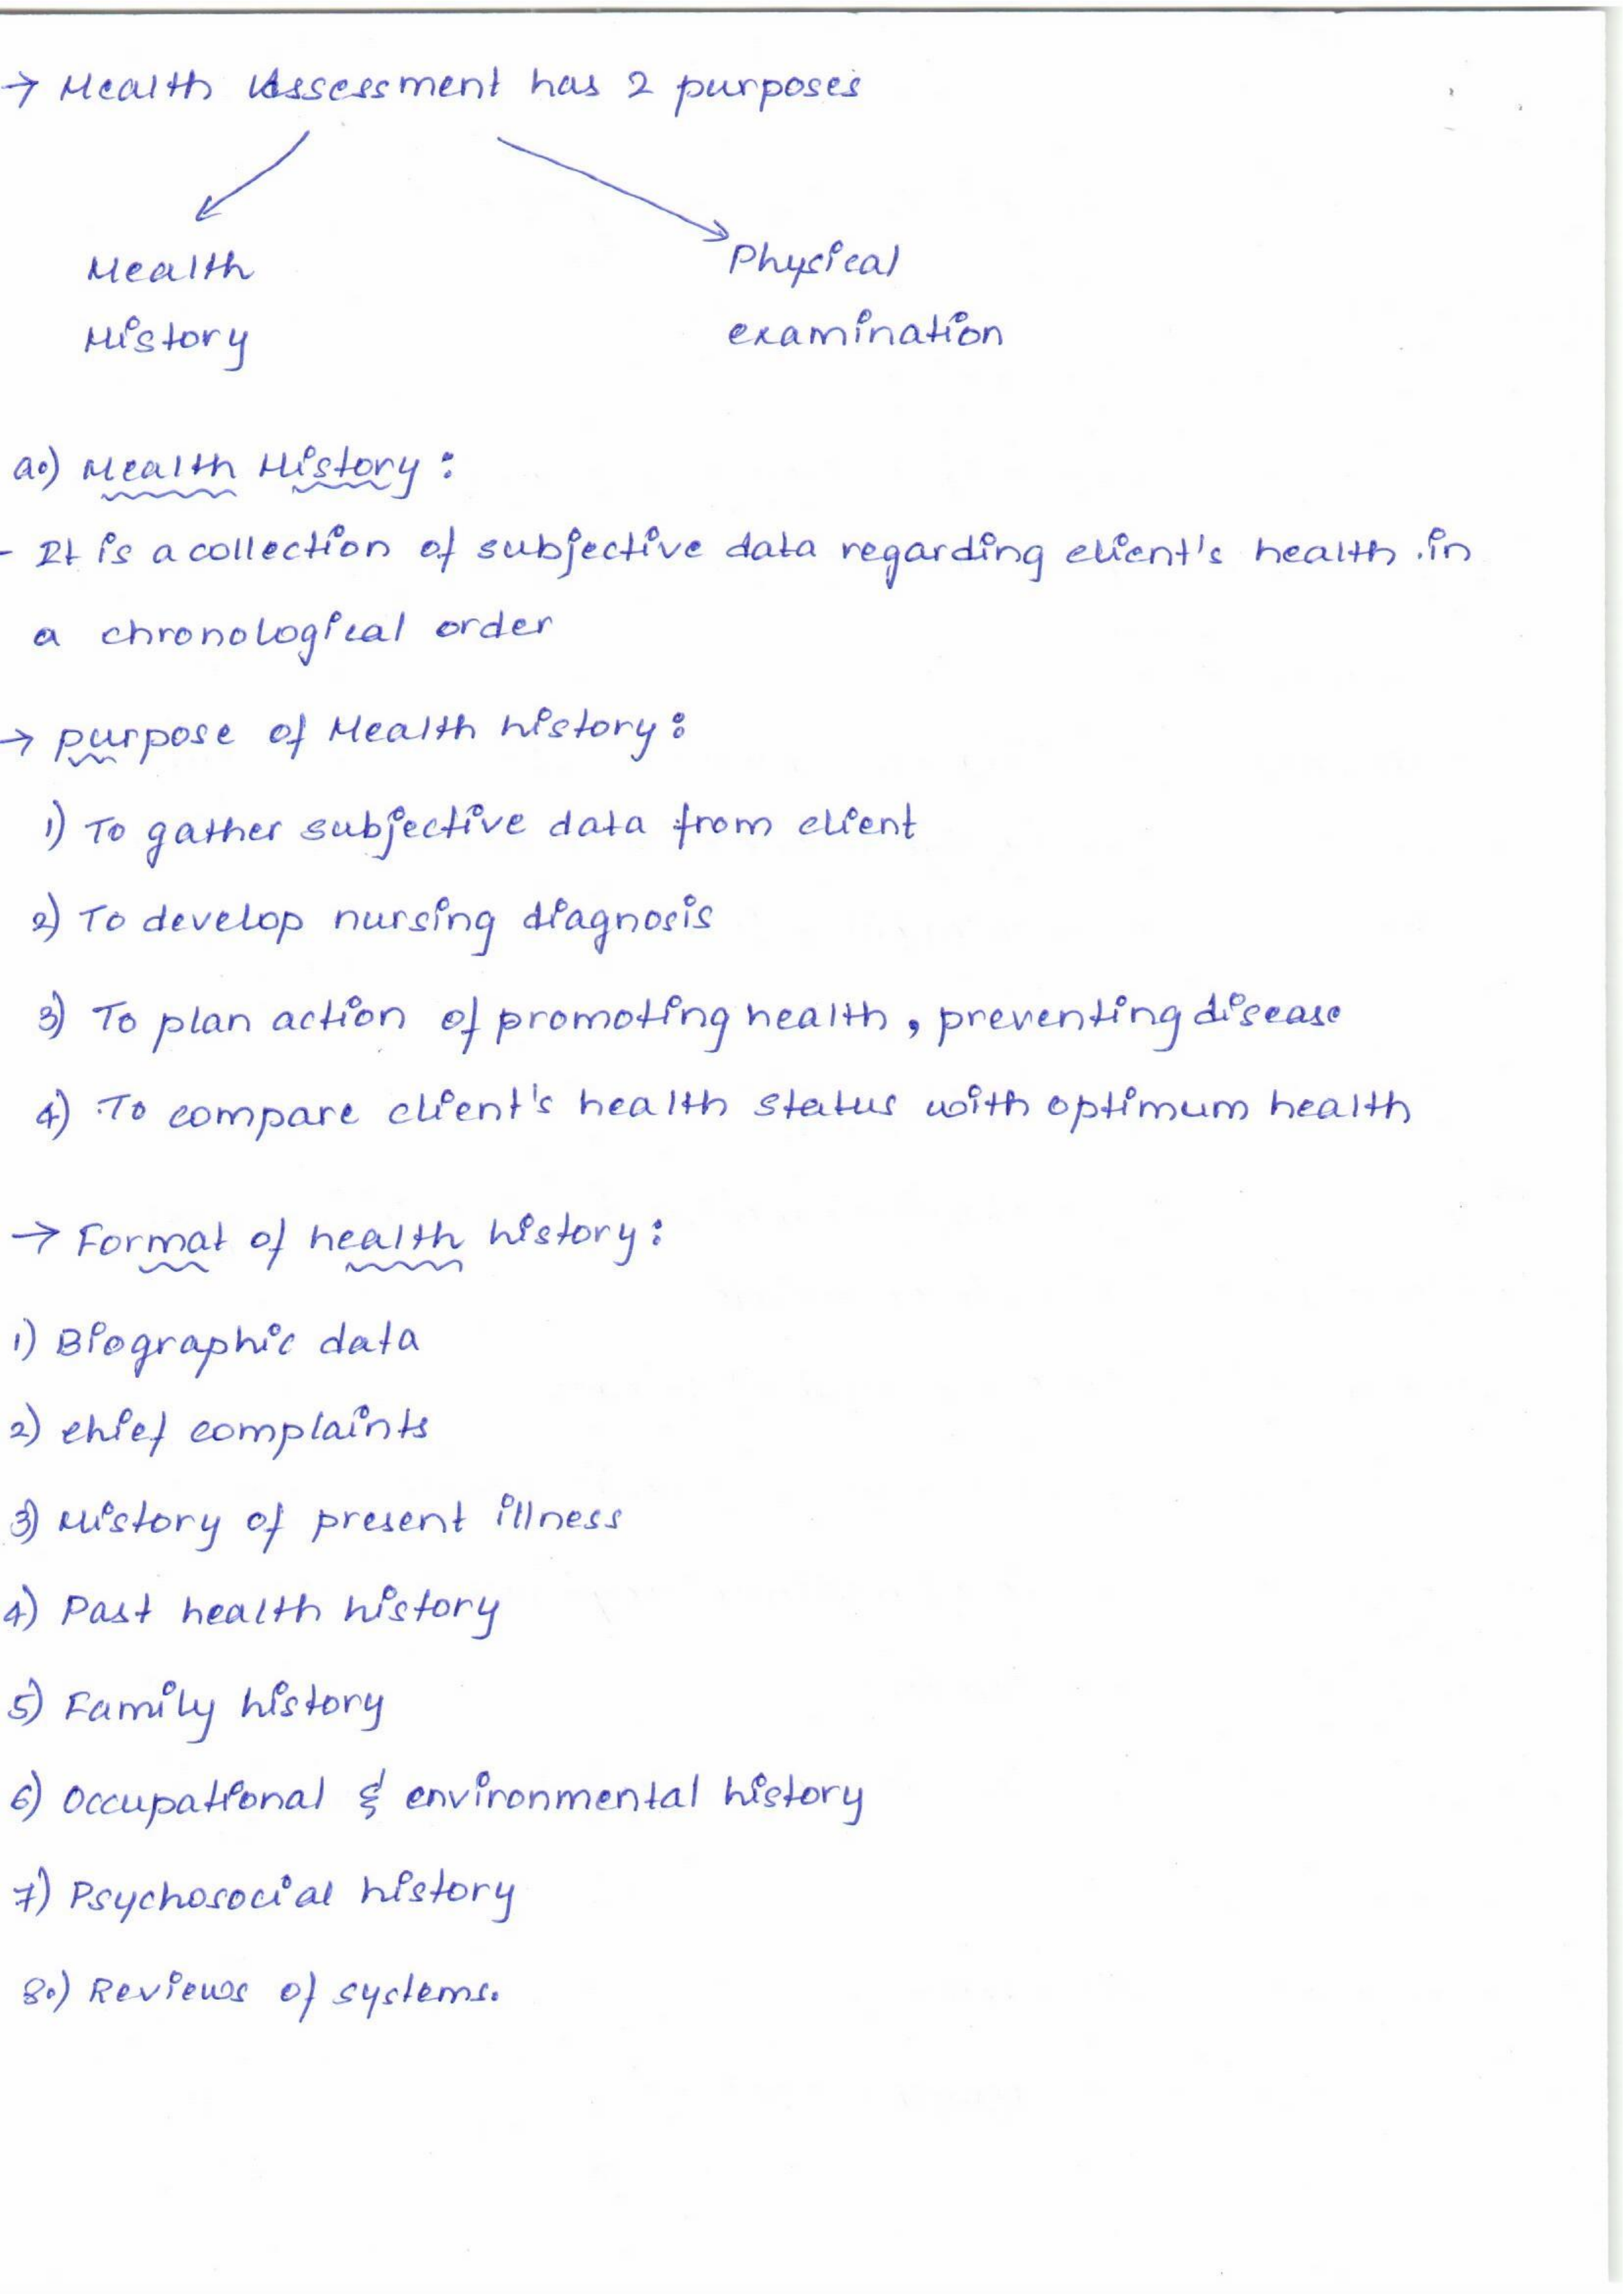 → Health Assessment has 2 purposes
Health Physical
History examination
a.) Health History:
- It is a collection of subjective data regarding client's health in
a chronological order
→ purpose of Health history:
1) To gather subjective data from client
2) To develop nursing diagnosis
3) To plan action of promoting health, preventing disease
4) To compare client's health status with optimum health
→ Format of health history:
1) Biographic data
2) chief complaints
3) History of present illness
4) Past health history
5) Family history
6) Occupational & environmental history
7) Psychosocial history
8.) Reviews of systems.